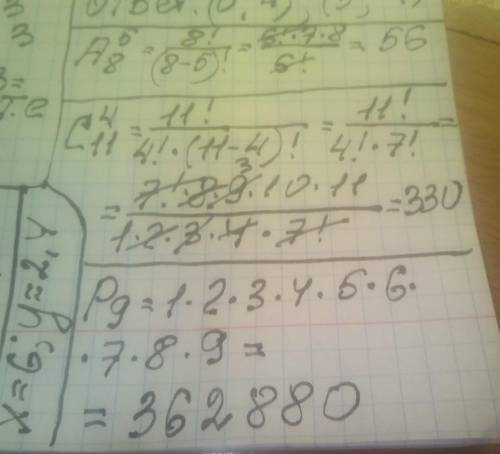 Ответ: (0, 4), (5,
A₈⁵ = 8! / (8-5)! = 6!·7·8 / 6! = 56
C₁₁⁴ = 11! / 4!·(11-4)! = 11! / 4!·7! =
= 7!·8·9·10·11 / 1·2·3·4·7! = 330
3
P₉ = 1·2·3·4·5·6·
·7·8·9 =
= 362880
x=6; y=2,4
3
3
3=
т.е